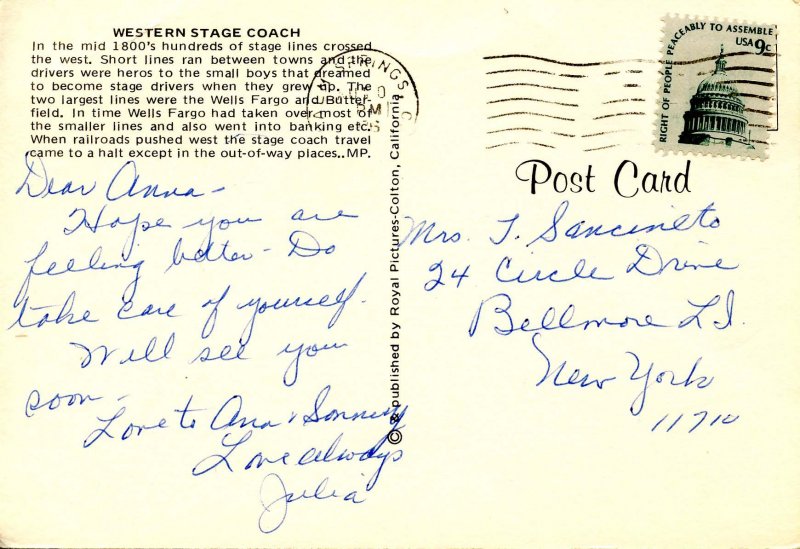 WESTERN STAGE COACH
In the mid 1800's hundreds of stage lines crossed
the west. Short lines ran between towns and the
drivers were heros to the small boys that dreamed
to become stage drivers when they grew up. The
two largest lines were the Wells Fargo and Butter-
field. In time Wells Fargo had taken over most of
the smaller lines and also went into banking etc.
When railroads pushed west the stage coach travel
came to a halt except in the out-of-way places..MP.
Dear Anna -
Hope you are
feeling better - Do
take care of yourself.
Will see you
soon -
Love to Ana & Sonny
Love always
Julia
© & published by Royal Pictures-Colton, California
SPRINGS
PM
RIGHT OF PEOPLE PEACEABLY TO ASSEMBLE
USA 9c
Post Card
Mrs. T. Sancineto
24 Circle Drive
Bellmore L.I.
New York
11710